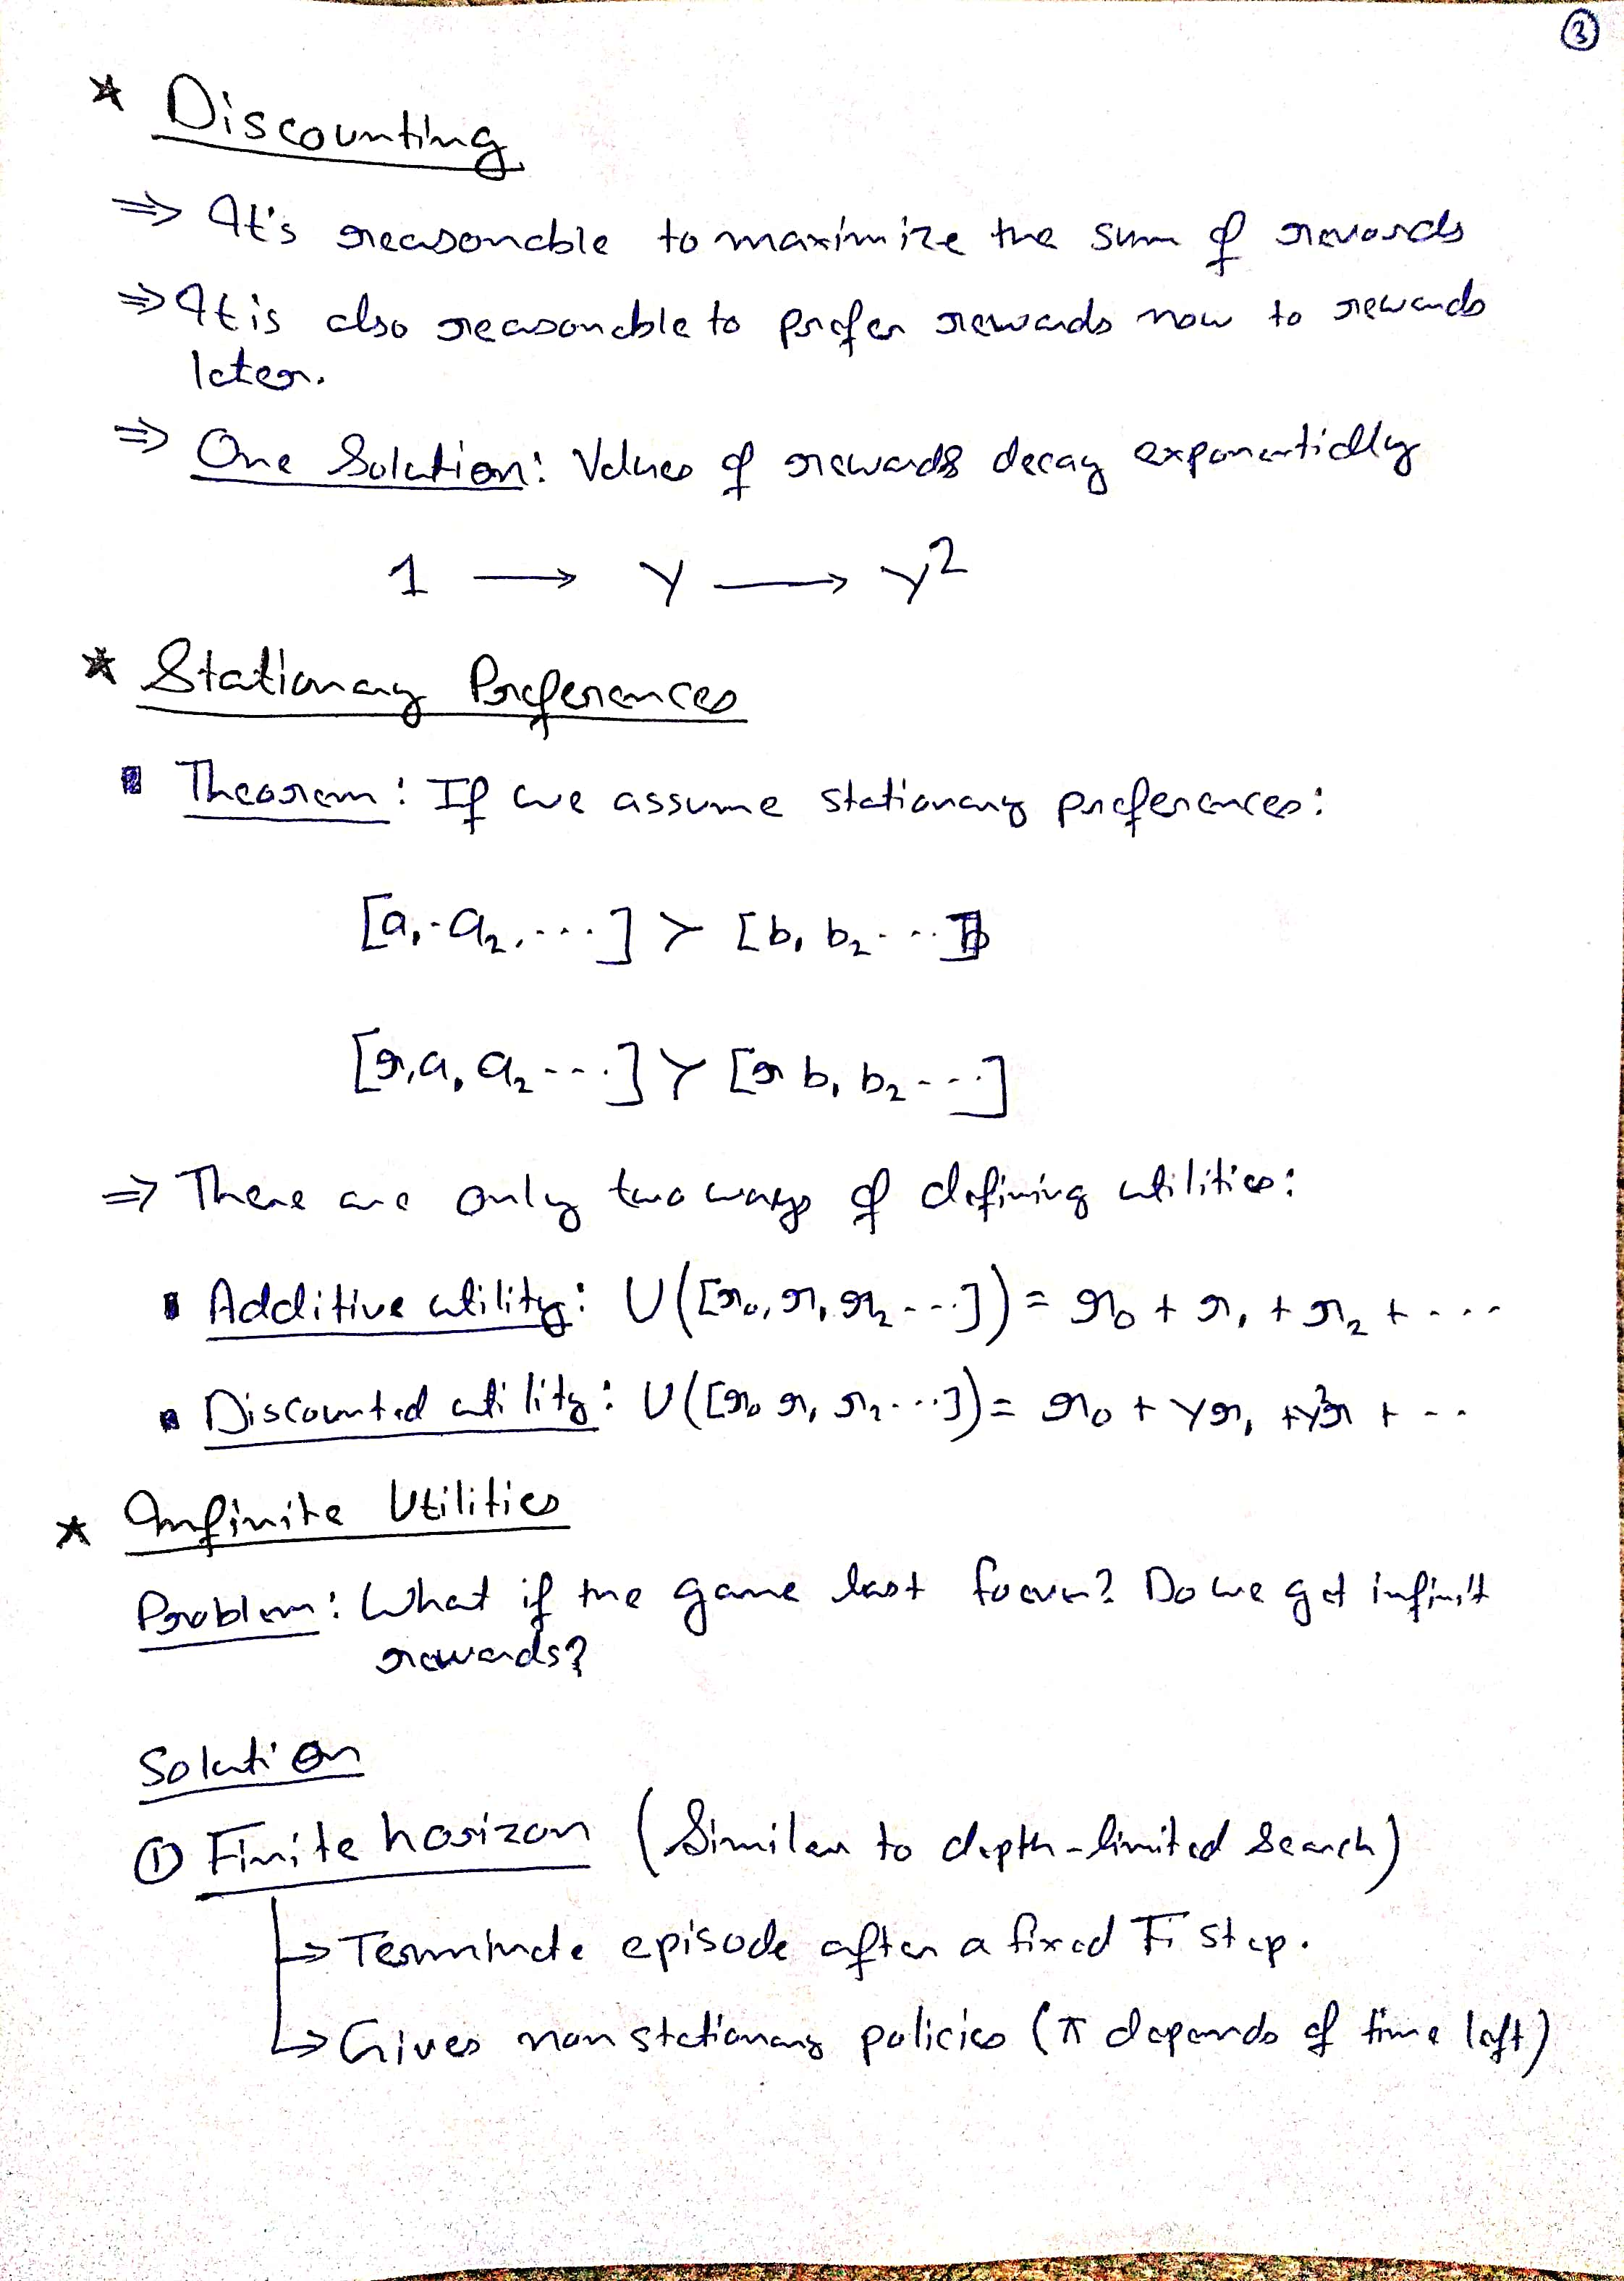 ③
* Discounting
⇒ It's reasonable to maximize the sum of rewards
⇒ It is also reasonable to prefer rewards now to rewards
later.
⇒ One Solution: Values of rewards decay exponentially
1 → γ → γ²
* Stationary Preferences
▪ Theorem: If we assume stationary preferences:
[a₁, a₂, ...] ≻ [b₁ b₂ ...]
[r, a₁ a₂ ...] ≻ [r b₁ b₂ ...]
⇒ There are only two ways of defining utilities:
▪ Additive utility: U([r₀, r₁, r₂ ...]) = r₀ + r₁ + r₂ + ....
▪ Discounted utility: U([r₀ r₁ r₂ ...]) = r₀ + γr₁ + γ²r + ..
* Infinite Utilities
Problem: What if the game last foever? Do we get infinit
rewards?
Solution
① Finite horizon (Similar to depth-limited search)
↳ Terminate episode after a fixed Ti step.
↳ Gives non stationary policies (π depends of time left)